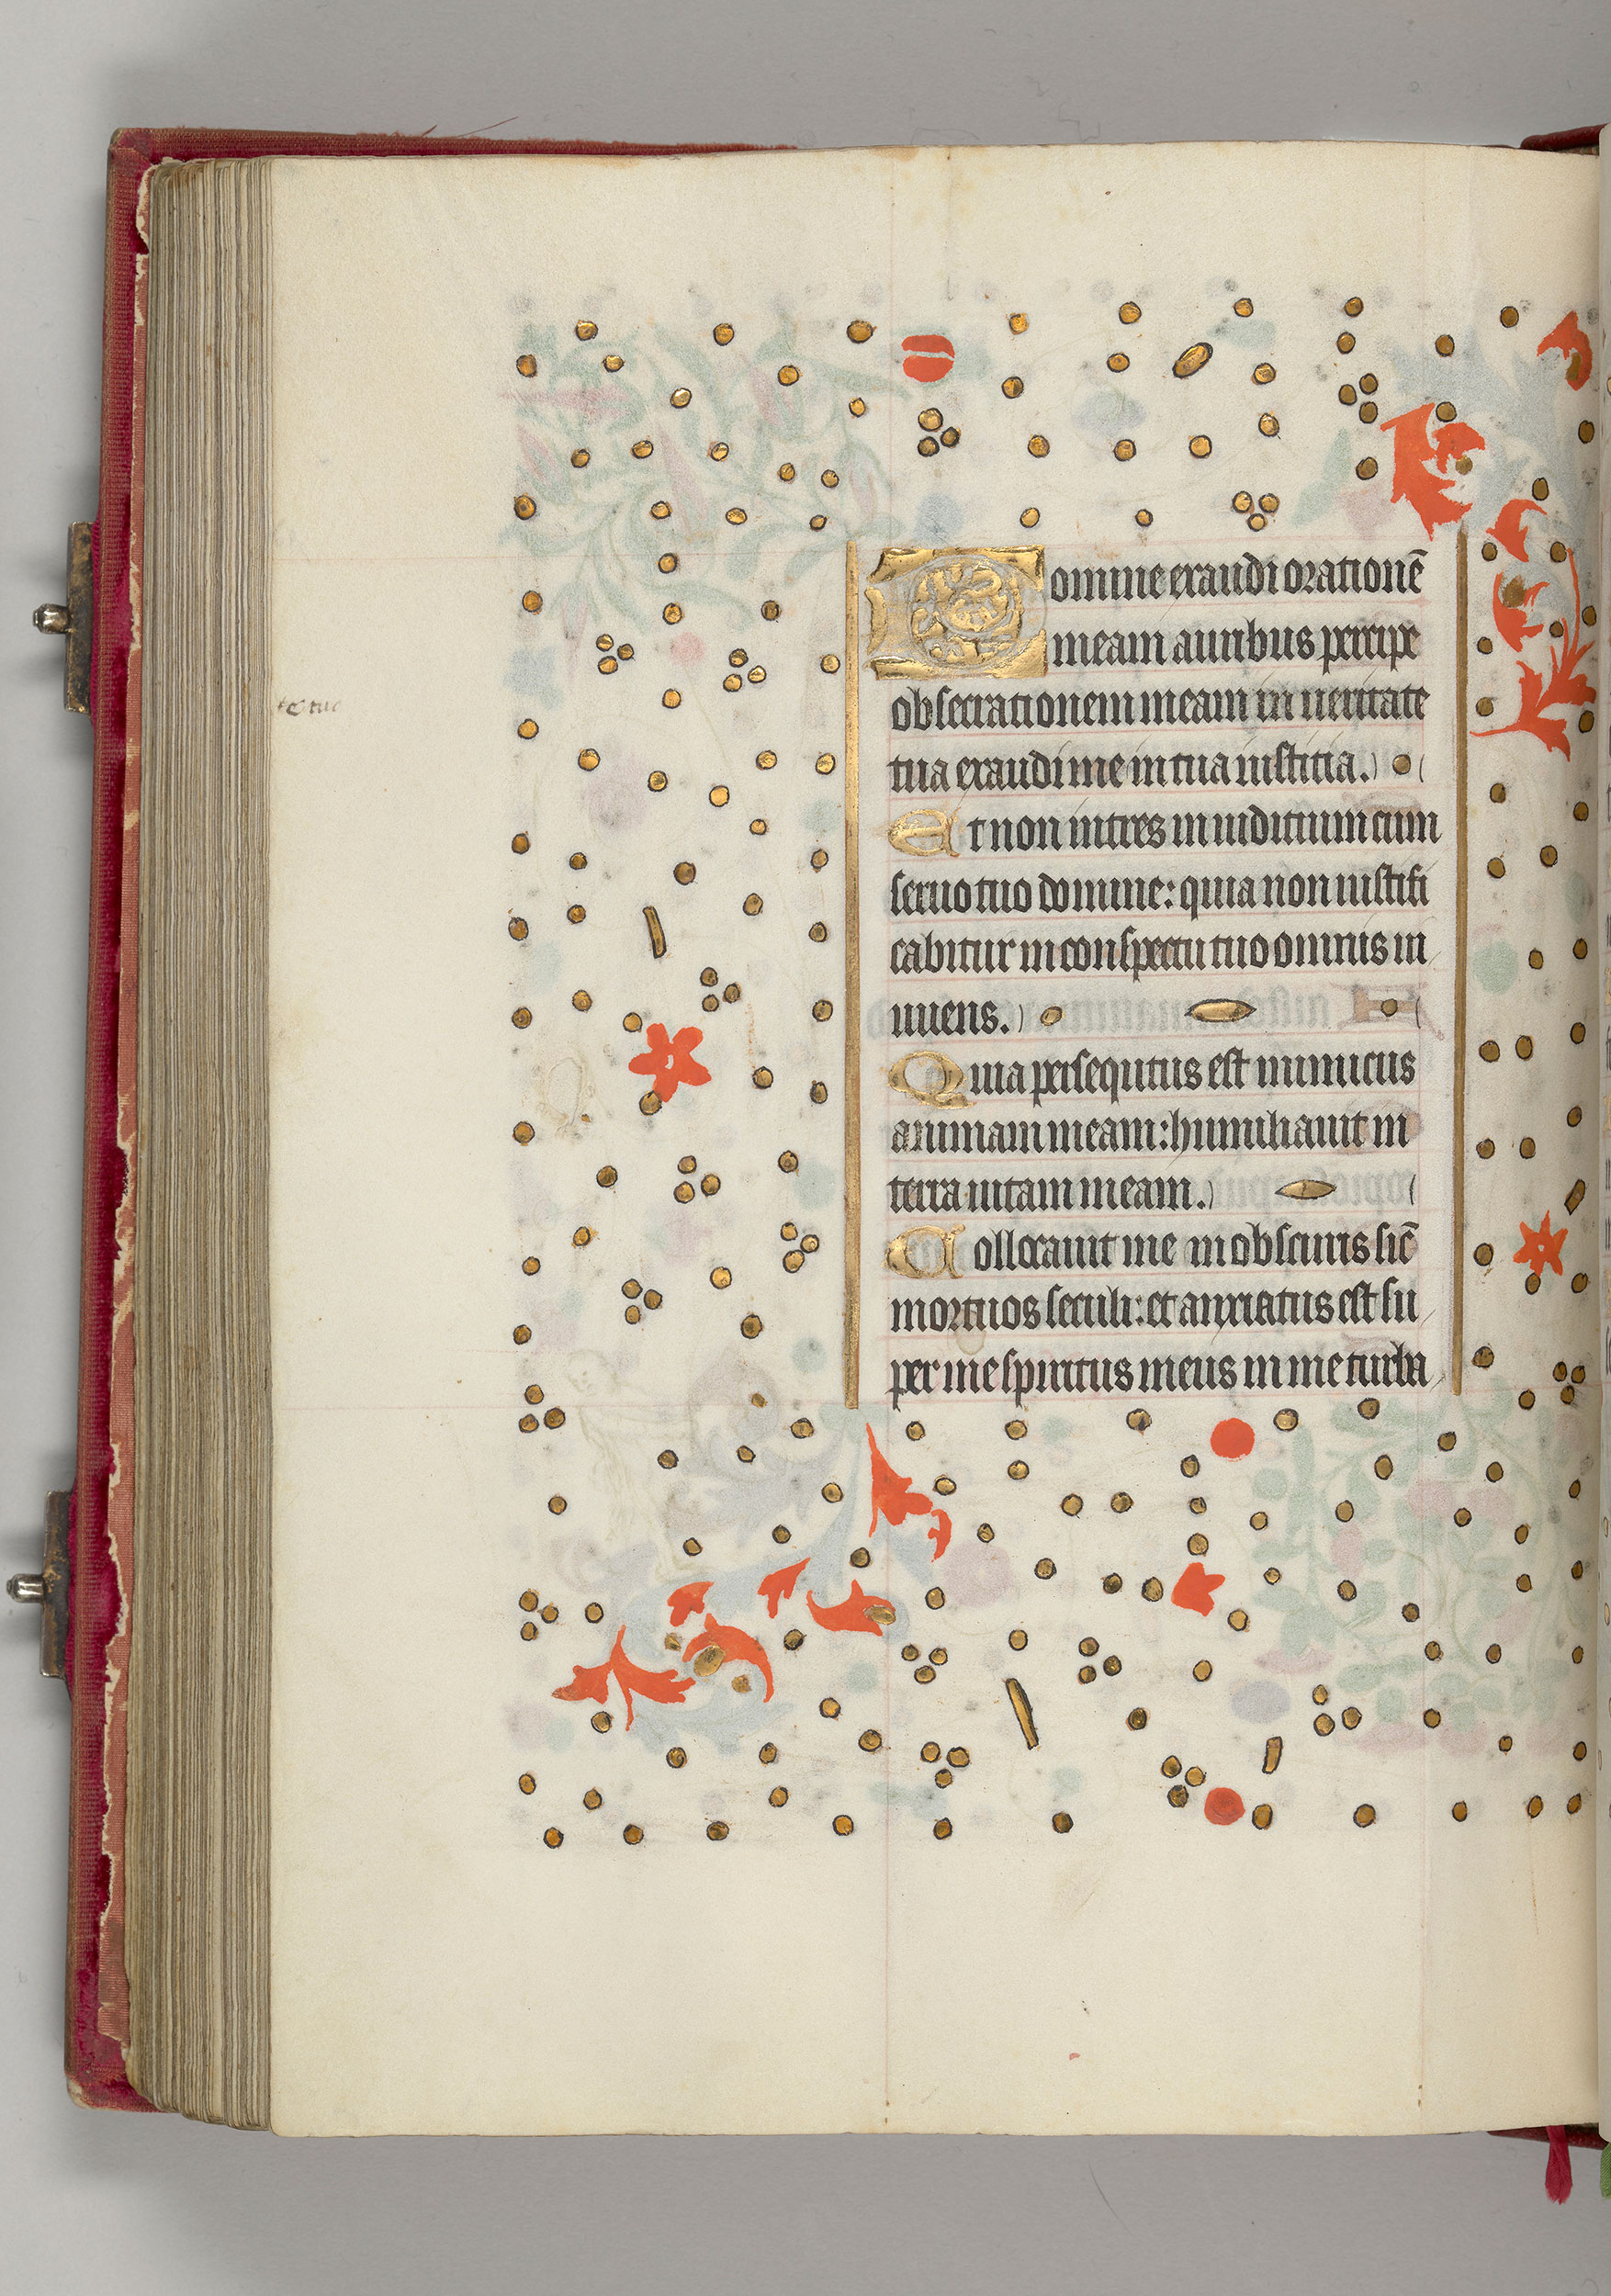 Domine exaudi orationē
meam auribus percipe
obsecrationem meam in ueritate
tua exaudi me in tua iustitia.
Et non intres in iuditium cum
seruo tuo domine: quia non iustifi
cabitur in conspectu tuo omnis in
uiuens.
Quia persequtus est inimicus
animam meam: humiliauit in
terra uitam meam.
Collocauit me in obscuris sic̄
mortuos seculi: et anxiatus est su
per me spiritus meus in me turba